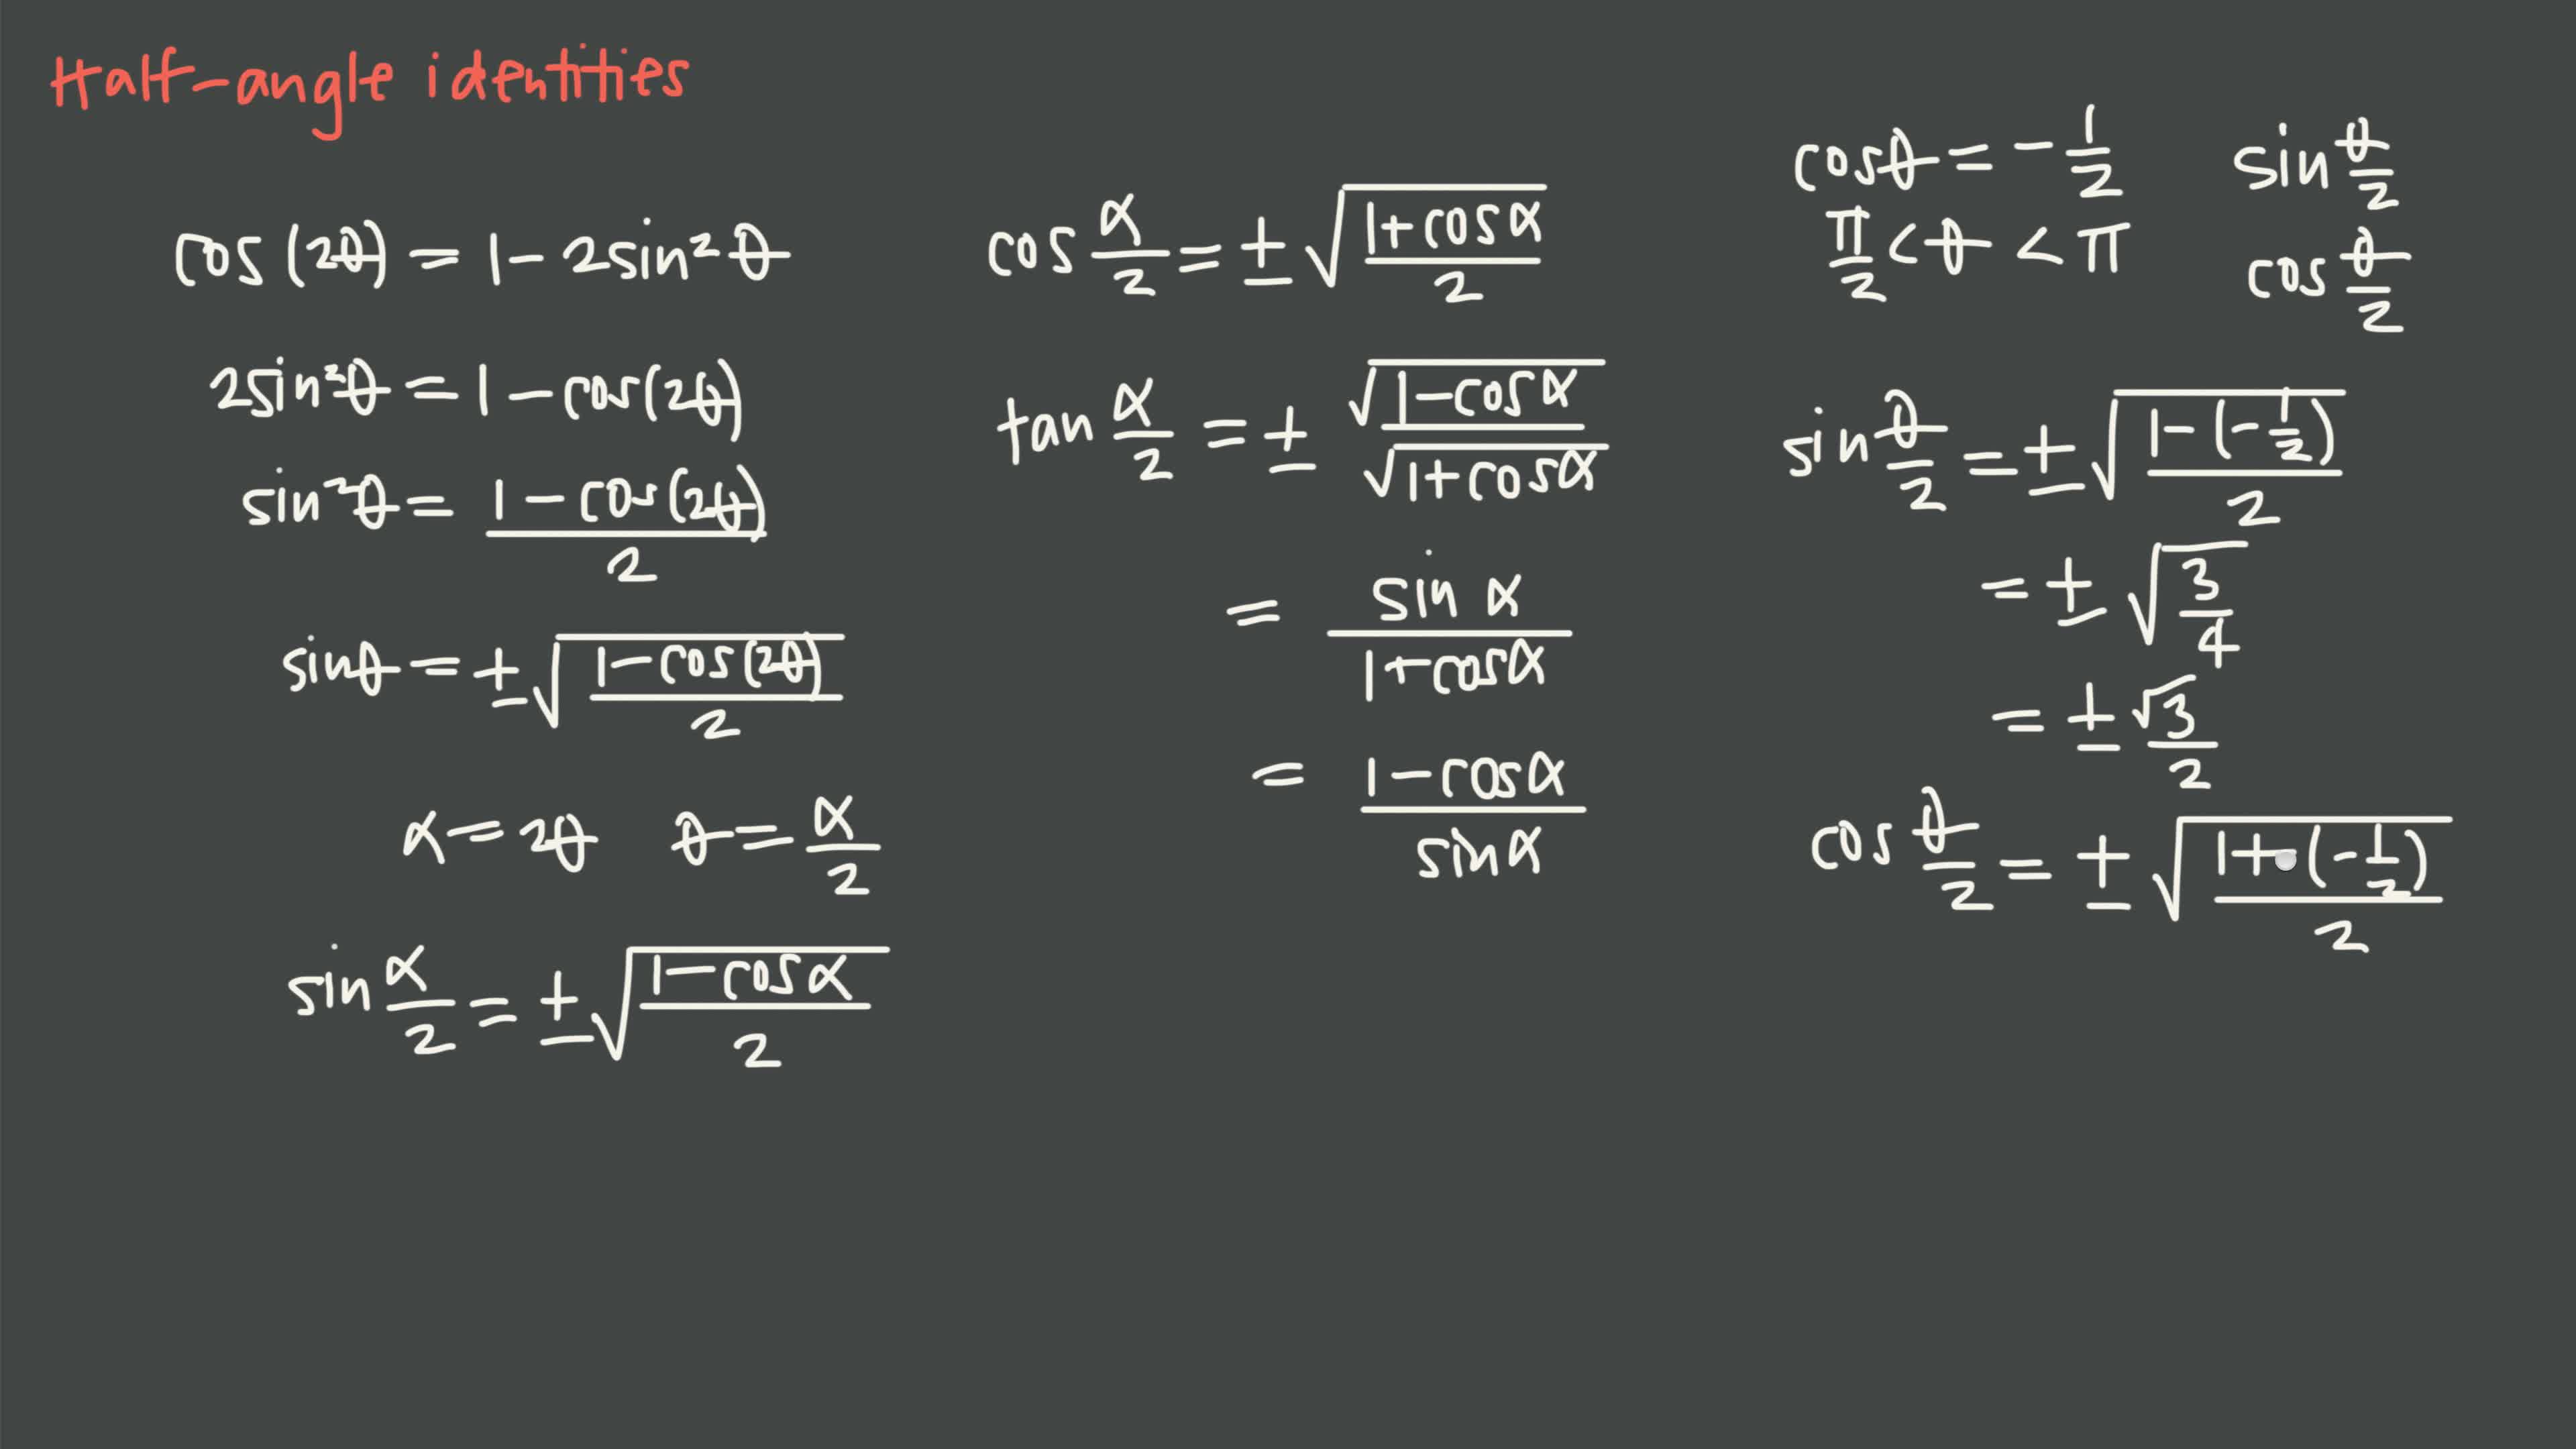 Half-angle identities
cos(2θ) = 1 - 2sin²θ
2sin²θ = 1 - cos(2θ)
sin²θ = (1 - cos(2θ))/2
sinθ = ±√((1 - cos(2θ))/2)
α = 2θ θ = α/2
sin α/2 = ±√((1 - cosα)/2)
cos α/2 = ±√((1 + cosα)/2)
tan α/2 = ± √(1 - cosα)/√(1 + cosα)
= sin α/(1 + cosα)
= (1 - cosα)/sinα
cosθ = -1/2 sin θ/2
π/2 < θ < π cos θ/2
sin θ/2 = ±√((1 - (-1/2))/2)
= ±√(3/4)
= ±√3/2
cos θ/2 = ±√((1 + (-1/2))/2)